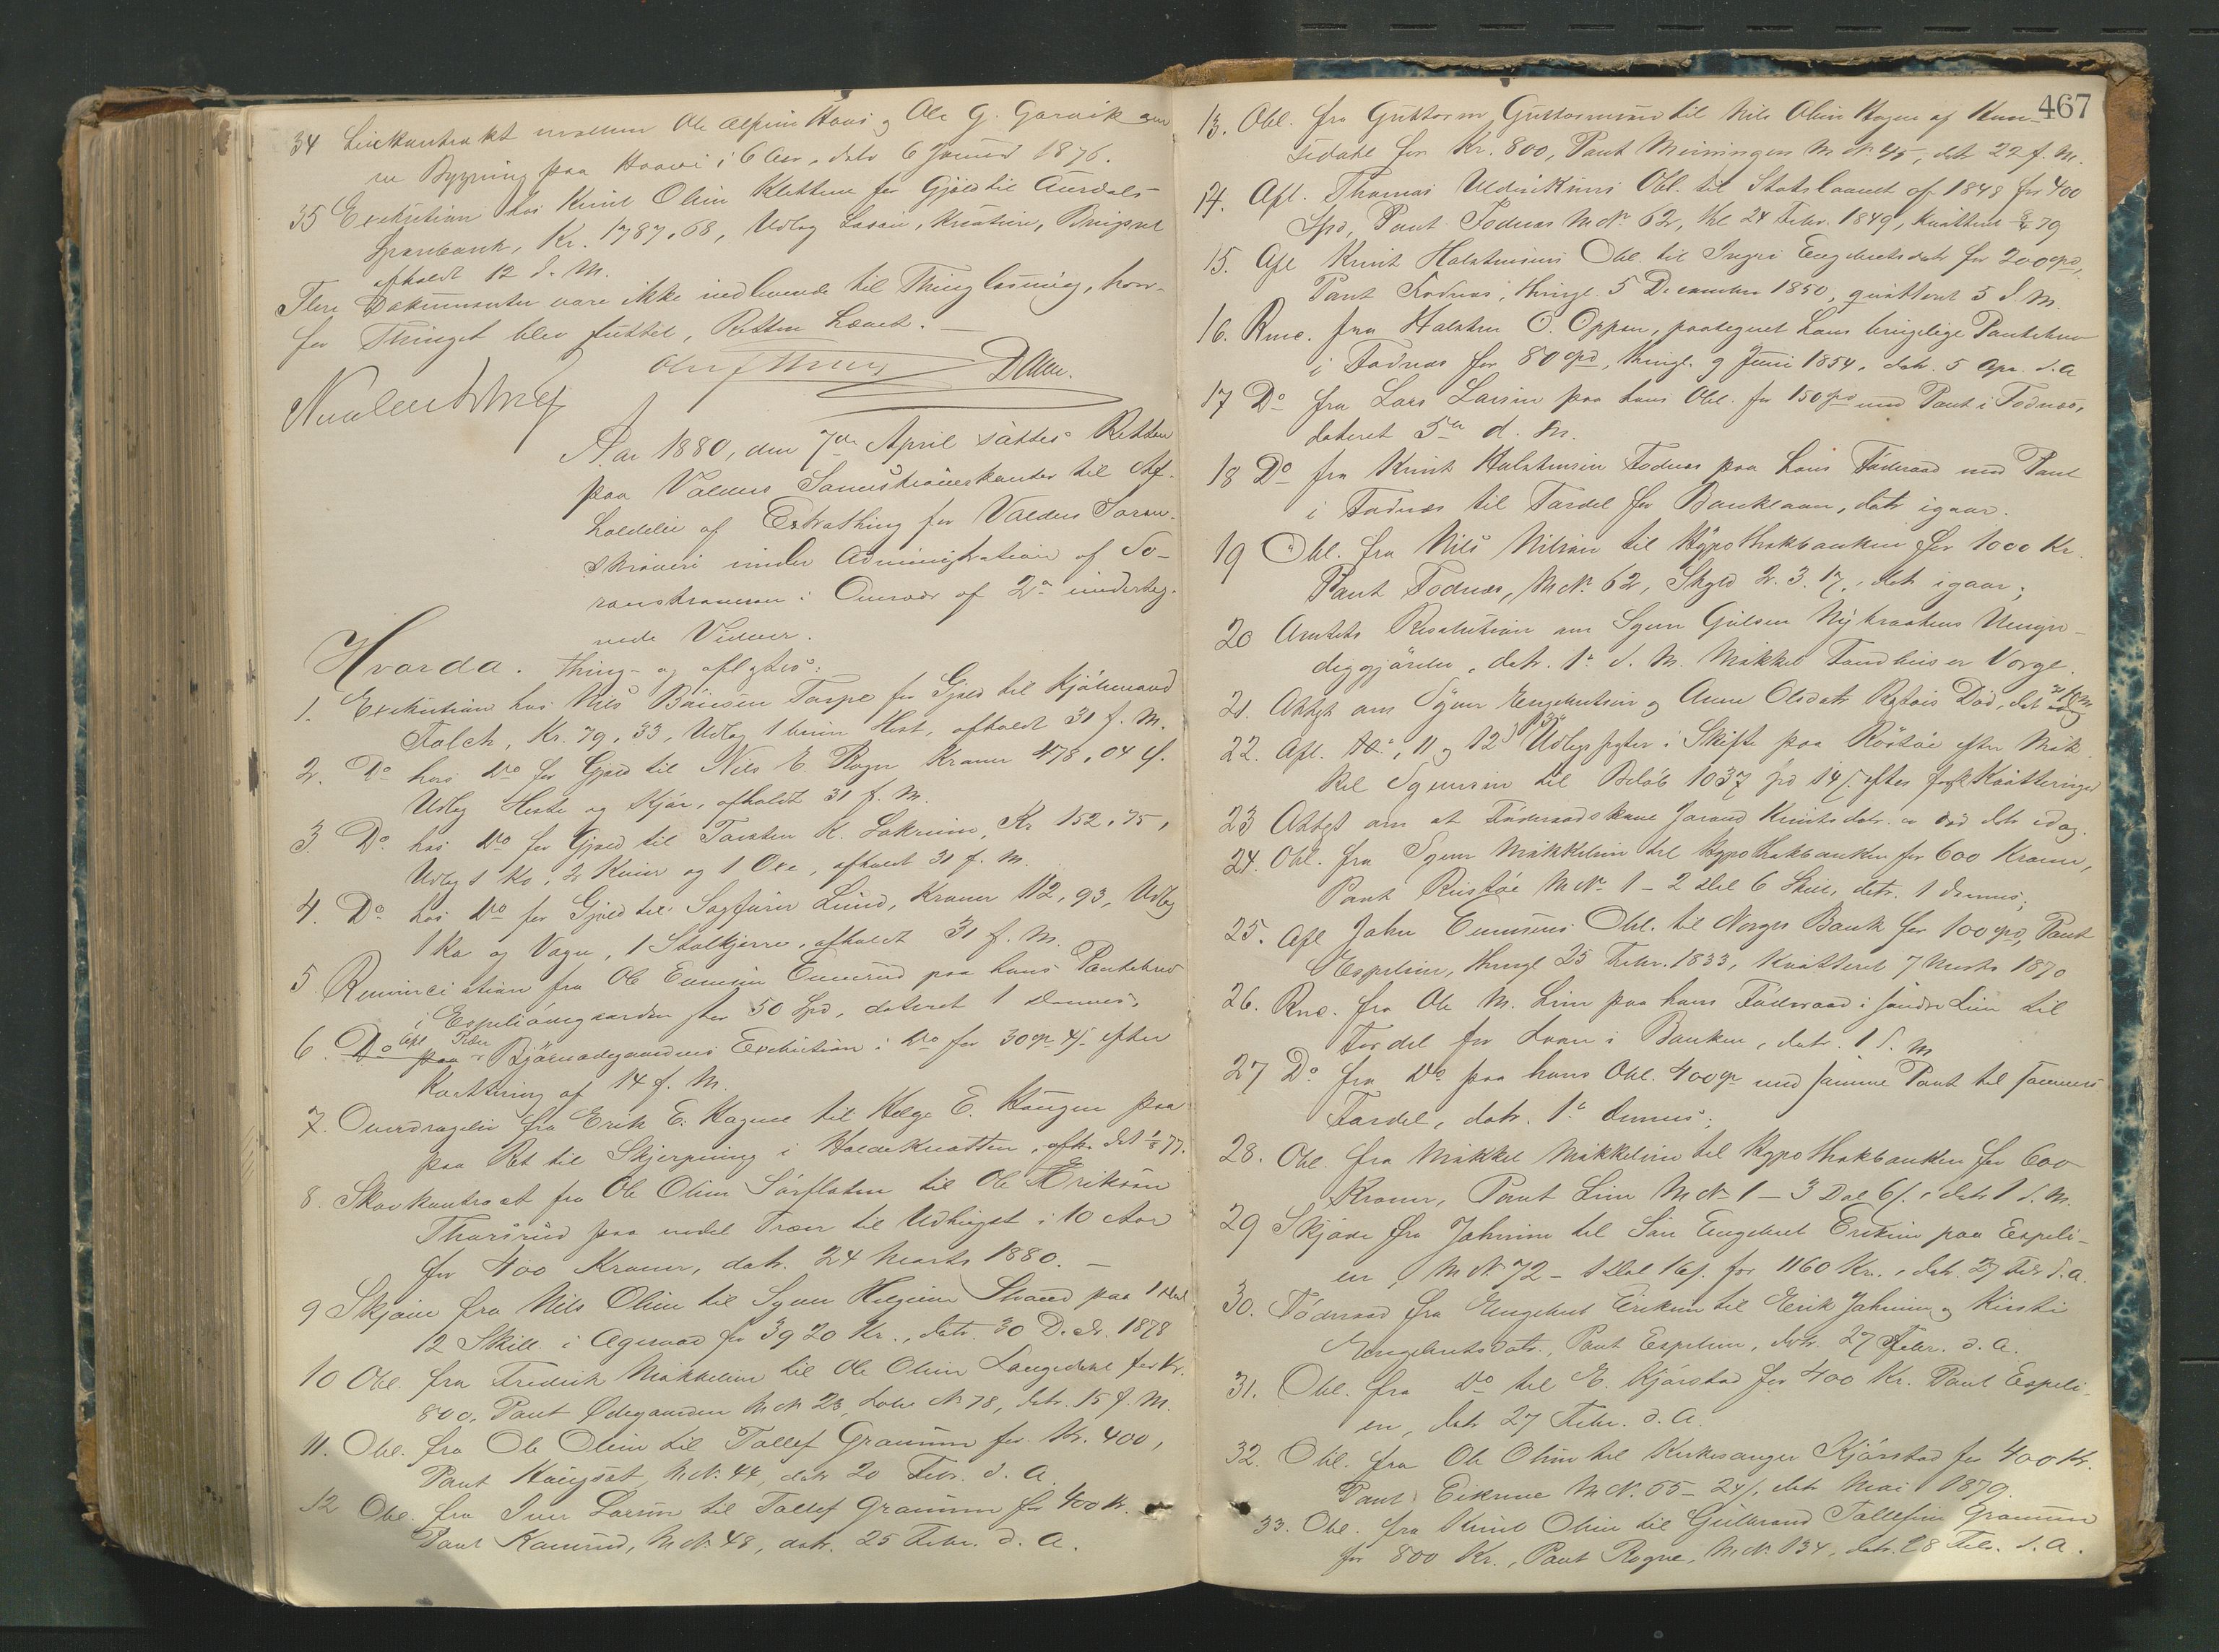 34 Leiekontrakt mellem Ole og Ole G. Garvik om
en Bygning paa i 6 Aar, datr 6 Januar 1876.
35 Exekution hos Knut Olsen Klettene for Gjæld til Aurdals
Sparebank, Kr. 1787,68, Udlæg Løsøre, Kreature, Brugset
afholdt 12 d. M.
Flere Dokumenter vare ikke indleverede til Thinglæsning, hvor-
for Thinget blev sluttet, Retten hævet. —
Aar 1880, den 7de April sattes Retten
paa Valders Sorenskriverkontor til Af-
holdelse af Extrathing for Valders Soren-
skriveri under Administration af So-
renskriveren i Overvær af 2de underteg-
nede Vidner.
Hvorda. thing- og aflystes:
1. Exekution hos Nils Torpe for Gjæld til Kjøbmand
Falch, Kr. 79,33, Udlæg 1 brun Hest, afholdt 31 f. M.
2. Do hos Do for Gjæld til Nils E. Rogn Kroner 478,04 Ø.
Udlæg Heste og Kjør, afholdt 31 f. M.
3. Do hos Do for Gjæld til Torsten K. Kr 152,75,
Udlæg 1 Ko, 2 Kviver og 1 Oxe, afholdt 31 f. M.
4. Do hos Do for Gjæld til Sagfører Lund, Kroner 112,93, Udlæg
1 Ko og Vogn, 1 Stolkjerre, afholdt 31 f. M.
5 Renunciation fra Ole paa hans Pantebrev
i for 50 Spd, dateret 1 dennes.
6. Do paa Afl. Exekution i Do for 30 4 efter
Kvittering af 14 f. M.
7. Overdragelse fra Erik E. Hagene til Helge E. Haugen paa
paa Ret til Skjerpning i
8. Skovkontract fra Ole Olsen Sørflaten til Ole Eriksøn
paa endel Træer til Udhugst i 10 Aar
for 400 Kroner, datr. 24 Marts 1880. —
9 Skjøde fra Nils Olsen til Syver Helgesen Strand paa 1 Dal
12 Skill. i for 3920 Kr., datr. 30 Decbr. 1878
10 Obl. fra Fredrik Mikkelsen til Ole Olsen Langedahl for Kr.
800, Pant Ødegaarden M. N. 23, Løbe N. 78, datr. 15 f. M.
11. Obl. fra Ole Olsen til Tollef for Kr. 400,
Pant M. N. 44, datr 20 Febr. d. A.
12 Obl. fra Iver Larsen til Tollef for 400 Kr.
Pant M. N. 48, datr. 25 Febr. d. A.
467
13. Obl. fra Guttorm Guttormsen til Nils Olsen Rogne af
for Kr. 800, Pant M. N. 45, datr 22 f. M.
14. Afl. Thomas Obl. til Statslaanet af 1848 for 400
Spd, Pant Fodnæs M. N. 62, thl 24 Febr. 1849, kvitteret
15. Afl Knut Halstensens Obl. til Ingri Engebretsdatr for 200 Spd,
Pant Fodnæs, thingl. 5 December 1850, qvitteret 5 d. M.
16. Renc. fra Halsten O. Oppen, paategnet hans tinglige Pantebrev
i Fodnæs for 80 Spd, thingl. 9 Juni 1854, datr. 5 Apr. d. A
17 Do fra Lars Larsen paa hans Obl. for 150 Spd med Pant i Fodnæs,
dateret 5te d. M.
18 Do fra Knut Halstensen Fodnæs paa hans Føderaad med Pant
i Fodnæs til Fordel for Banklaan, datr igaar.
19 Obl. fra Nils Nilsen til Hypothekbanken for 1000 Kr.
Pant Fodnæs, M. N. 62, Skyld 2. 3. 17, datr igaar;
20 Amtets Resolution om Syver Gulsen Umyn-
diggjørelse, datr. 1te d. M. Mikkel er Værge.
21. Attest om Syver Engebretsen og Anne Olsdatr Død, dat
22. Afl. 10de, 11 og 12 Udlægsposter i Skifte paa efter Mik-
kel Syversen til Beløb 1037 Spd 14 efter Kvitteringer
23 Attest om at Føderaadskone Jorand Knutsdatr. er død datr idag.
24. Obl. fra Syver Mikkelsen til Hypothekbanken for 600 Kroner,
Pant M. N. 1 – 2 Dal 6 Skill, datr. 1 dennes;
25. Afl John Obl. til Norges Bank for 100 Spd, Pant
Espelien, thingl 25 Febr. 1833, kvitteret 7 Marts 1870
26. Renc. fra Ole M. Lien paa hans Føderaad i søndre Lien til
Fordel for Laan i Banken, datr. 1 d. M
27 Do fra Do paa hans Obl. 400 med samme Pant til sammes
Fordel, datr. 1te dennes;
28. Obl. fra Mikkel Mikkelsen til Hypothekbanken for 600
Kroner, Pant Lien M. N. 1 – 3 Dal 6, datr 1 d. M.
29 Skjøde fra Johnsen til Søn Engebret Eriksen paa Espeli-
en, M. N. 72 – 1 Dal 16 for 1160 Kr., datr. 27 Febr d. A.
30. Føderaad fra Engebret Eriksen til Erik Johnsen og Kirsti
Engebretsdatr., Pant Espelien, datr. 27 Febr. d. A.
31. Obl. fra Do til E. Kjørstad for 400 Kr. Pant Espeli-
en, datr 27 Febr. d. A.
32. Obl. fra Ole Olsen til Kirkesanger Kjørstad for 400 Kr.
Pant M. N. 65 – 24, datr Mai 1879.
33. Obl. fra Knut Olsen til Gulbrand Tollefsen
for 800 Kr., Pant Rogne, M. N. 134, datr. 28 Febr. d. A.